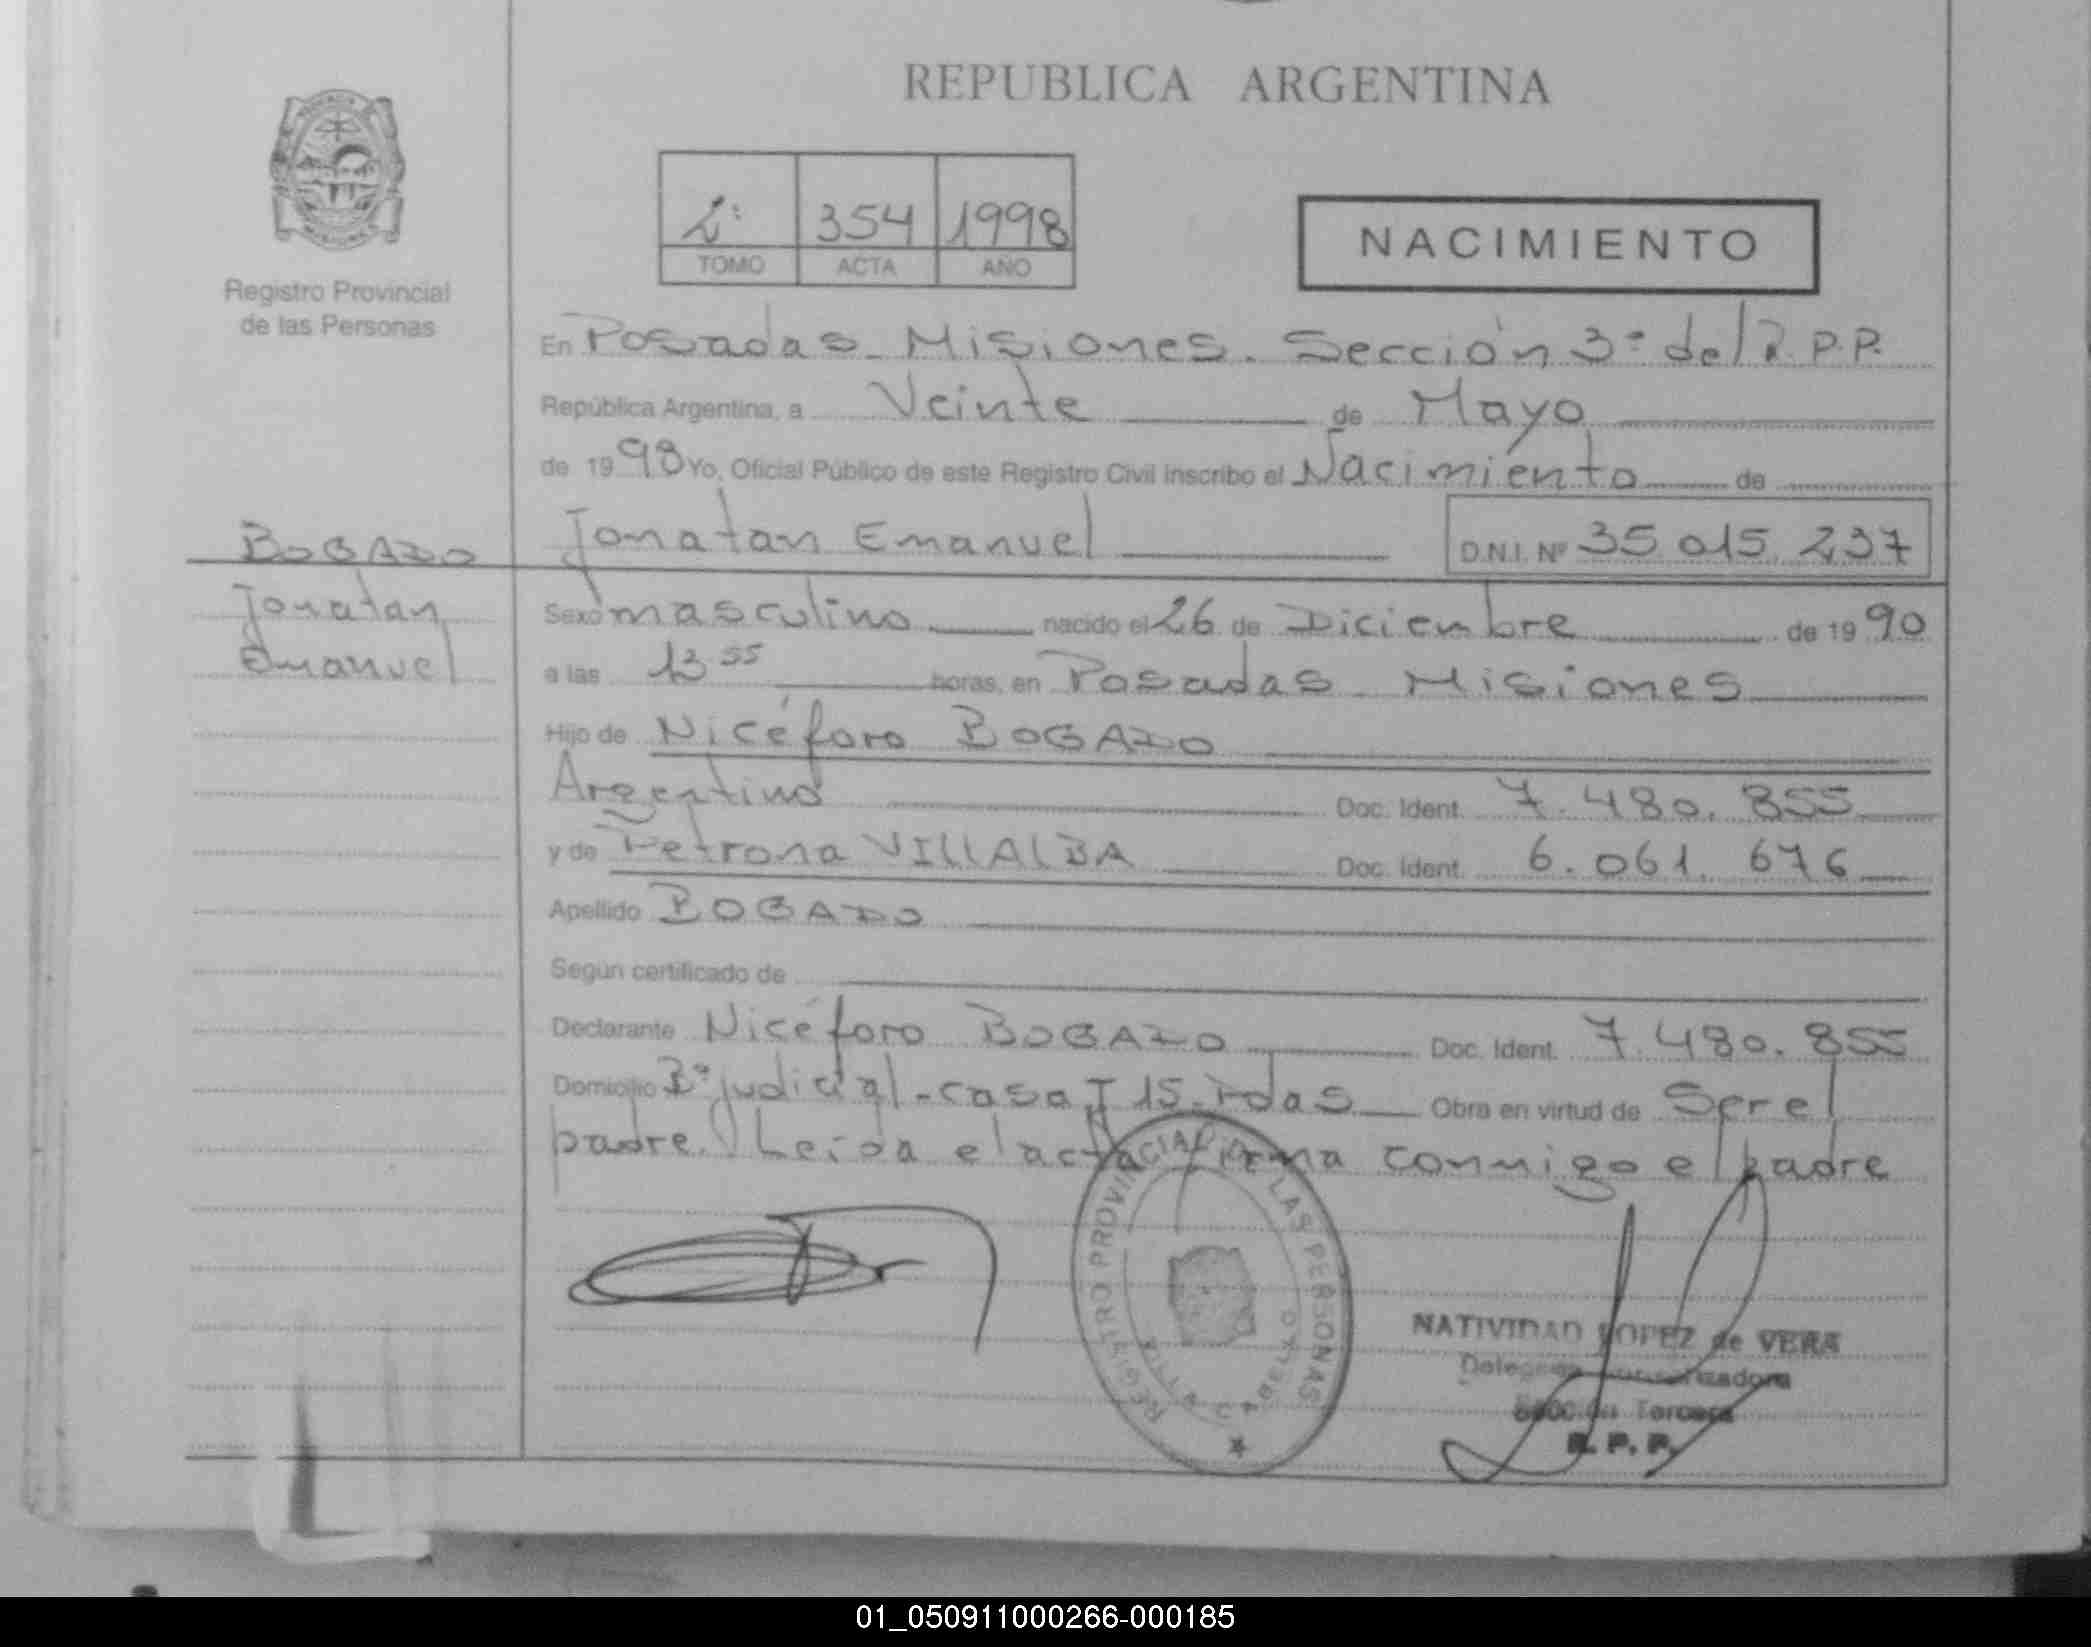 REPUBLICA ARGENTINA
Registro Provincial
de las Personas
2º 354 1998
TOMO ACTA AÑO
NACIMIENTO
En Posadas - Misiones. Sección 3º del R.P.P.
República Argentina, a Veinte de Mayo
de 1998 Yo, Oficial Público de este Registro Civil inscribo el Nacimiento de
BOGADO
Jonatan
Emanuel
Jonatan Emanuel D.N.I. Nº 35.015.237
Sexo masculino nacido el 26 de Diciembre de 1990
a las 13 55 horas, en Posadas - Misiones
Hijo de Nicéforo BOGADO
Argentino Doc. Ident. 7.480.855
y de Petrona VILLALBA Doc. Ident. 6.061.676
Apellido BOGADO
Según certificado de
Declarante Nicéforo BOGADO Doc. Ident. 7.480.855
Domicilio Bº judicial - casa 15 - Pdas Obra en virtud de Ser el
padre. Leída el acta firma conmigo el padre
REGISTRO PROVINCIAL DE LAS PERSONAS
NATIVIDAD LOPEZ de VERA
Tercera
R. P. P.
01_050911000266-000185